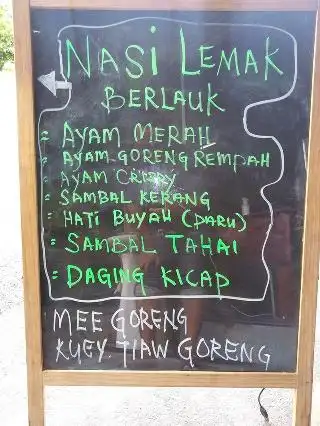 NASI LEMAK
BERLAUK
= AYAM MERAH
= AYAM GORENG REMPAH
= AYAM CRISPY
= SAMBAL KERANG
= HATI BUYAH (PARU)
= SAMBAL TAHAI
= DAGING KICAP
MEE GORENG
KUEY. TIAW GORENG